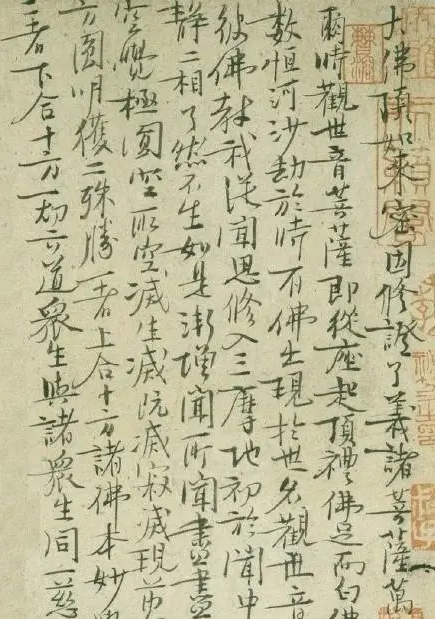 大佛頂如來密因修證了義諸菩薩萬
爾時觀世音菩薩即從座起頂禮佛足而白佛
數恒河沙劫於時有佛出現於世名觀世音
彼佛教我從聞思修入三摩地初於聞中
靜二相了然不生如是漸增聞所聞盡盡
空覺極圓空所空滅生滅既滅寂滅現前
方圓明獲二殊勝一者上合十方諸佛本妙覺
二者下合十方一切六道眾生與諸眾生同一慈